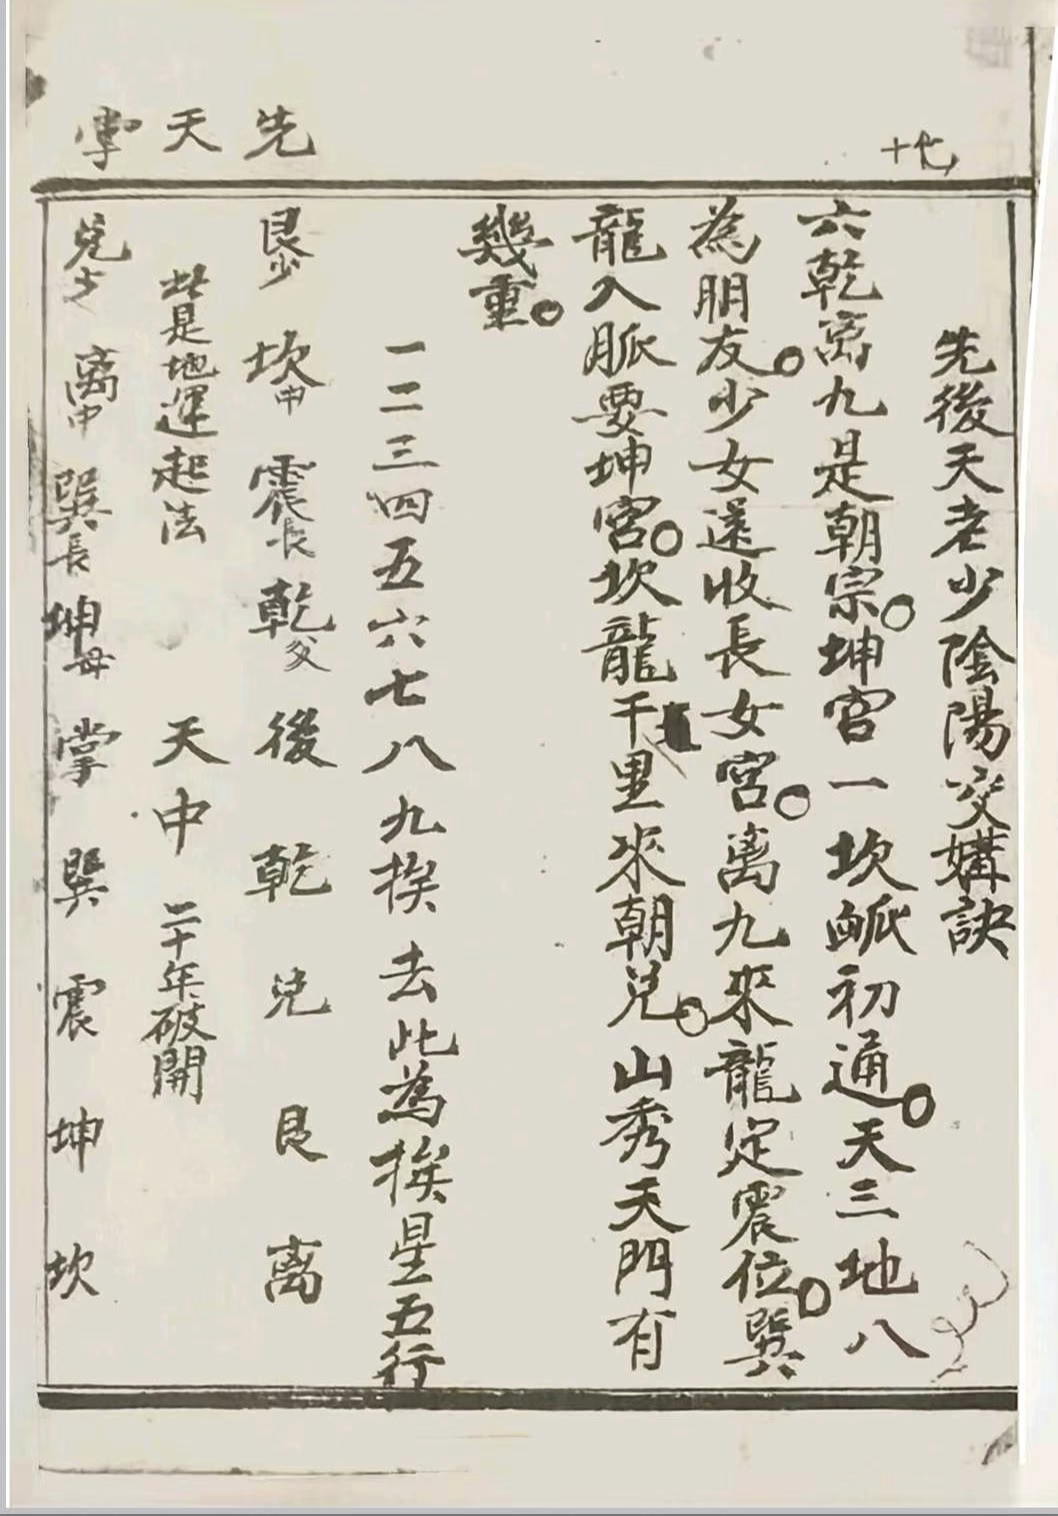 十七
先後天老少陰陽交媾訣
六乾离九是朝宗。坤宮一坎脈初通。天三地八
為朋友。少女還收長女宮。离九來龍定震位。巽
龍入脈要坤宮。坎龍千里來朝兌。山秀天門有
幾重。
一二三四五六七八九挨去此為挨星五行
先天掌
艮少 坎中 震長 乾父 後 乾 兌 艮 离
此是地運起法 天中 二十年破開
兌少 离中 巽長 坤母 掌 巽 震 坤 坎